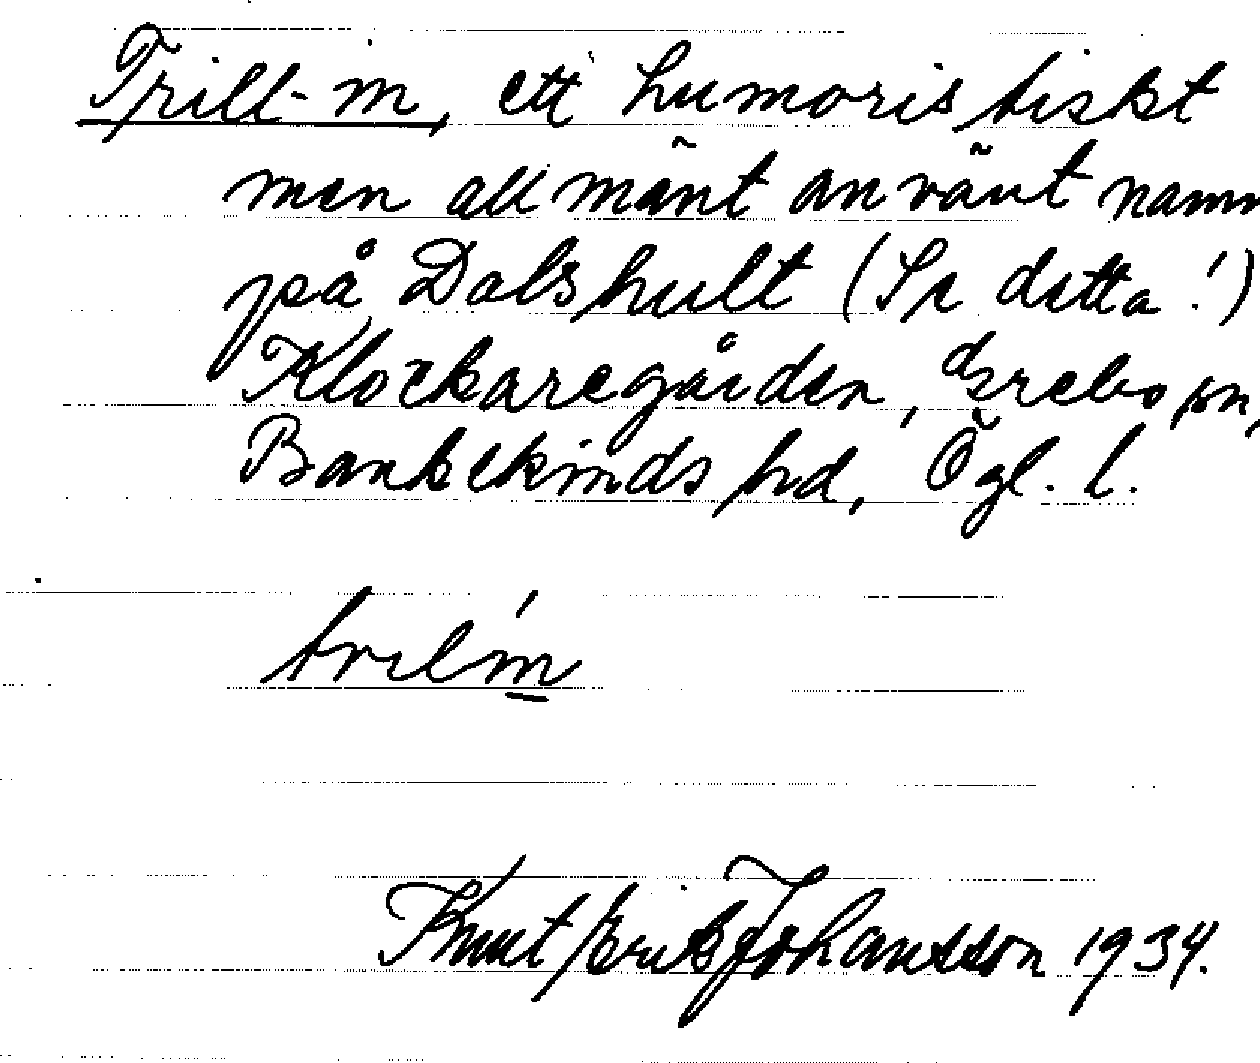 Trill-in, ett humoristiskt
men allmänt använt namn
på Dalshult (Se detta!)
Klockaregården, Grebo sn,
Bankekinds hd, Ögl. l.
tril in
Knut Erik Johansson 1934.